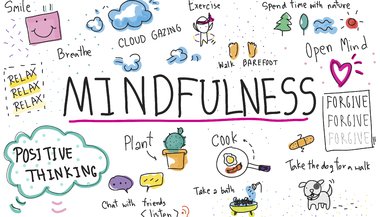 Smile
Exercise
Spend time with nature
CLOUD GAZING
Breathe
Walk BAREFOOT
Open Mind
RELAX
RELAX
RELAX
MINDFULNESS
FORGIVE
FORGIVE
FORGIVE
POSITIVE
THINKING
Plant
Cook
Take the dog for a walk
Chat with friends
(listen)
Take a bath